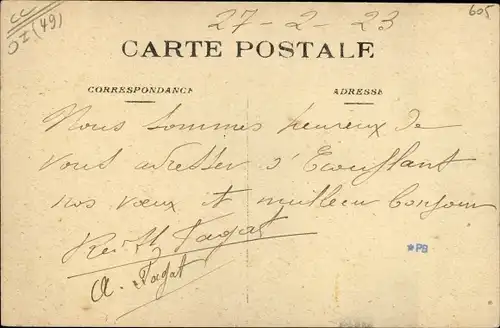 27-2-23
605
(49)
CARTE POSTALE
CORRESPONDANCE
ADRESSE
Nous sommes heureux de
vous adresser d'Ecouflant
nos vœux et meilleur bonjour
Fagat
A. Fagat
*PB